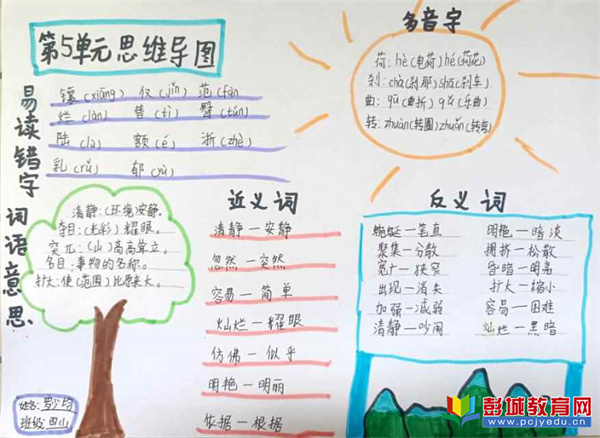 第5单元思维导图
易读错字
镶(xiāng) 仅(jǐn) 范(fàn
烂(làn) 昔(tì) 臀(tún)
陆(lù) 额(é) 浙(zhè)
乳(rǔ) 郁(yù)
多音字
荷:hè(电荷)hé(荷花)
刹:chà(刹那)shā(刹车)
曲:qū(曲折)qǔ(乐曲)
转:zhuàn(转圈)zhuǎn(转弯)
词语意思
清静:(环境)安静。
夺目:(光彩)耀眼。
突兀:(山)高高耸立。
名目:事物的名称。
扩大:使(范围)比原来大。
近义词
清静—安静
忽然—突然
容易—简单
灿烂—耀眼
仿佛—似乎
明艳—明丽
依据—根据
反义词
蜿蜒—笔直 明艳—暗淡
聚集—分散 拥挤—松散
宽广—狭窄 昏暗—明亮
出现—消失 扩大—缩小
加强—减弱 容易—困难
清静—吵闹 灿烂—黑暗
姓名:
班级:四山
彭城教育网
www.pcjyedu.cn